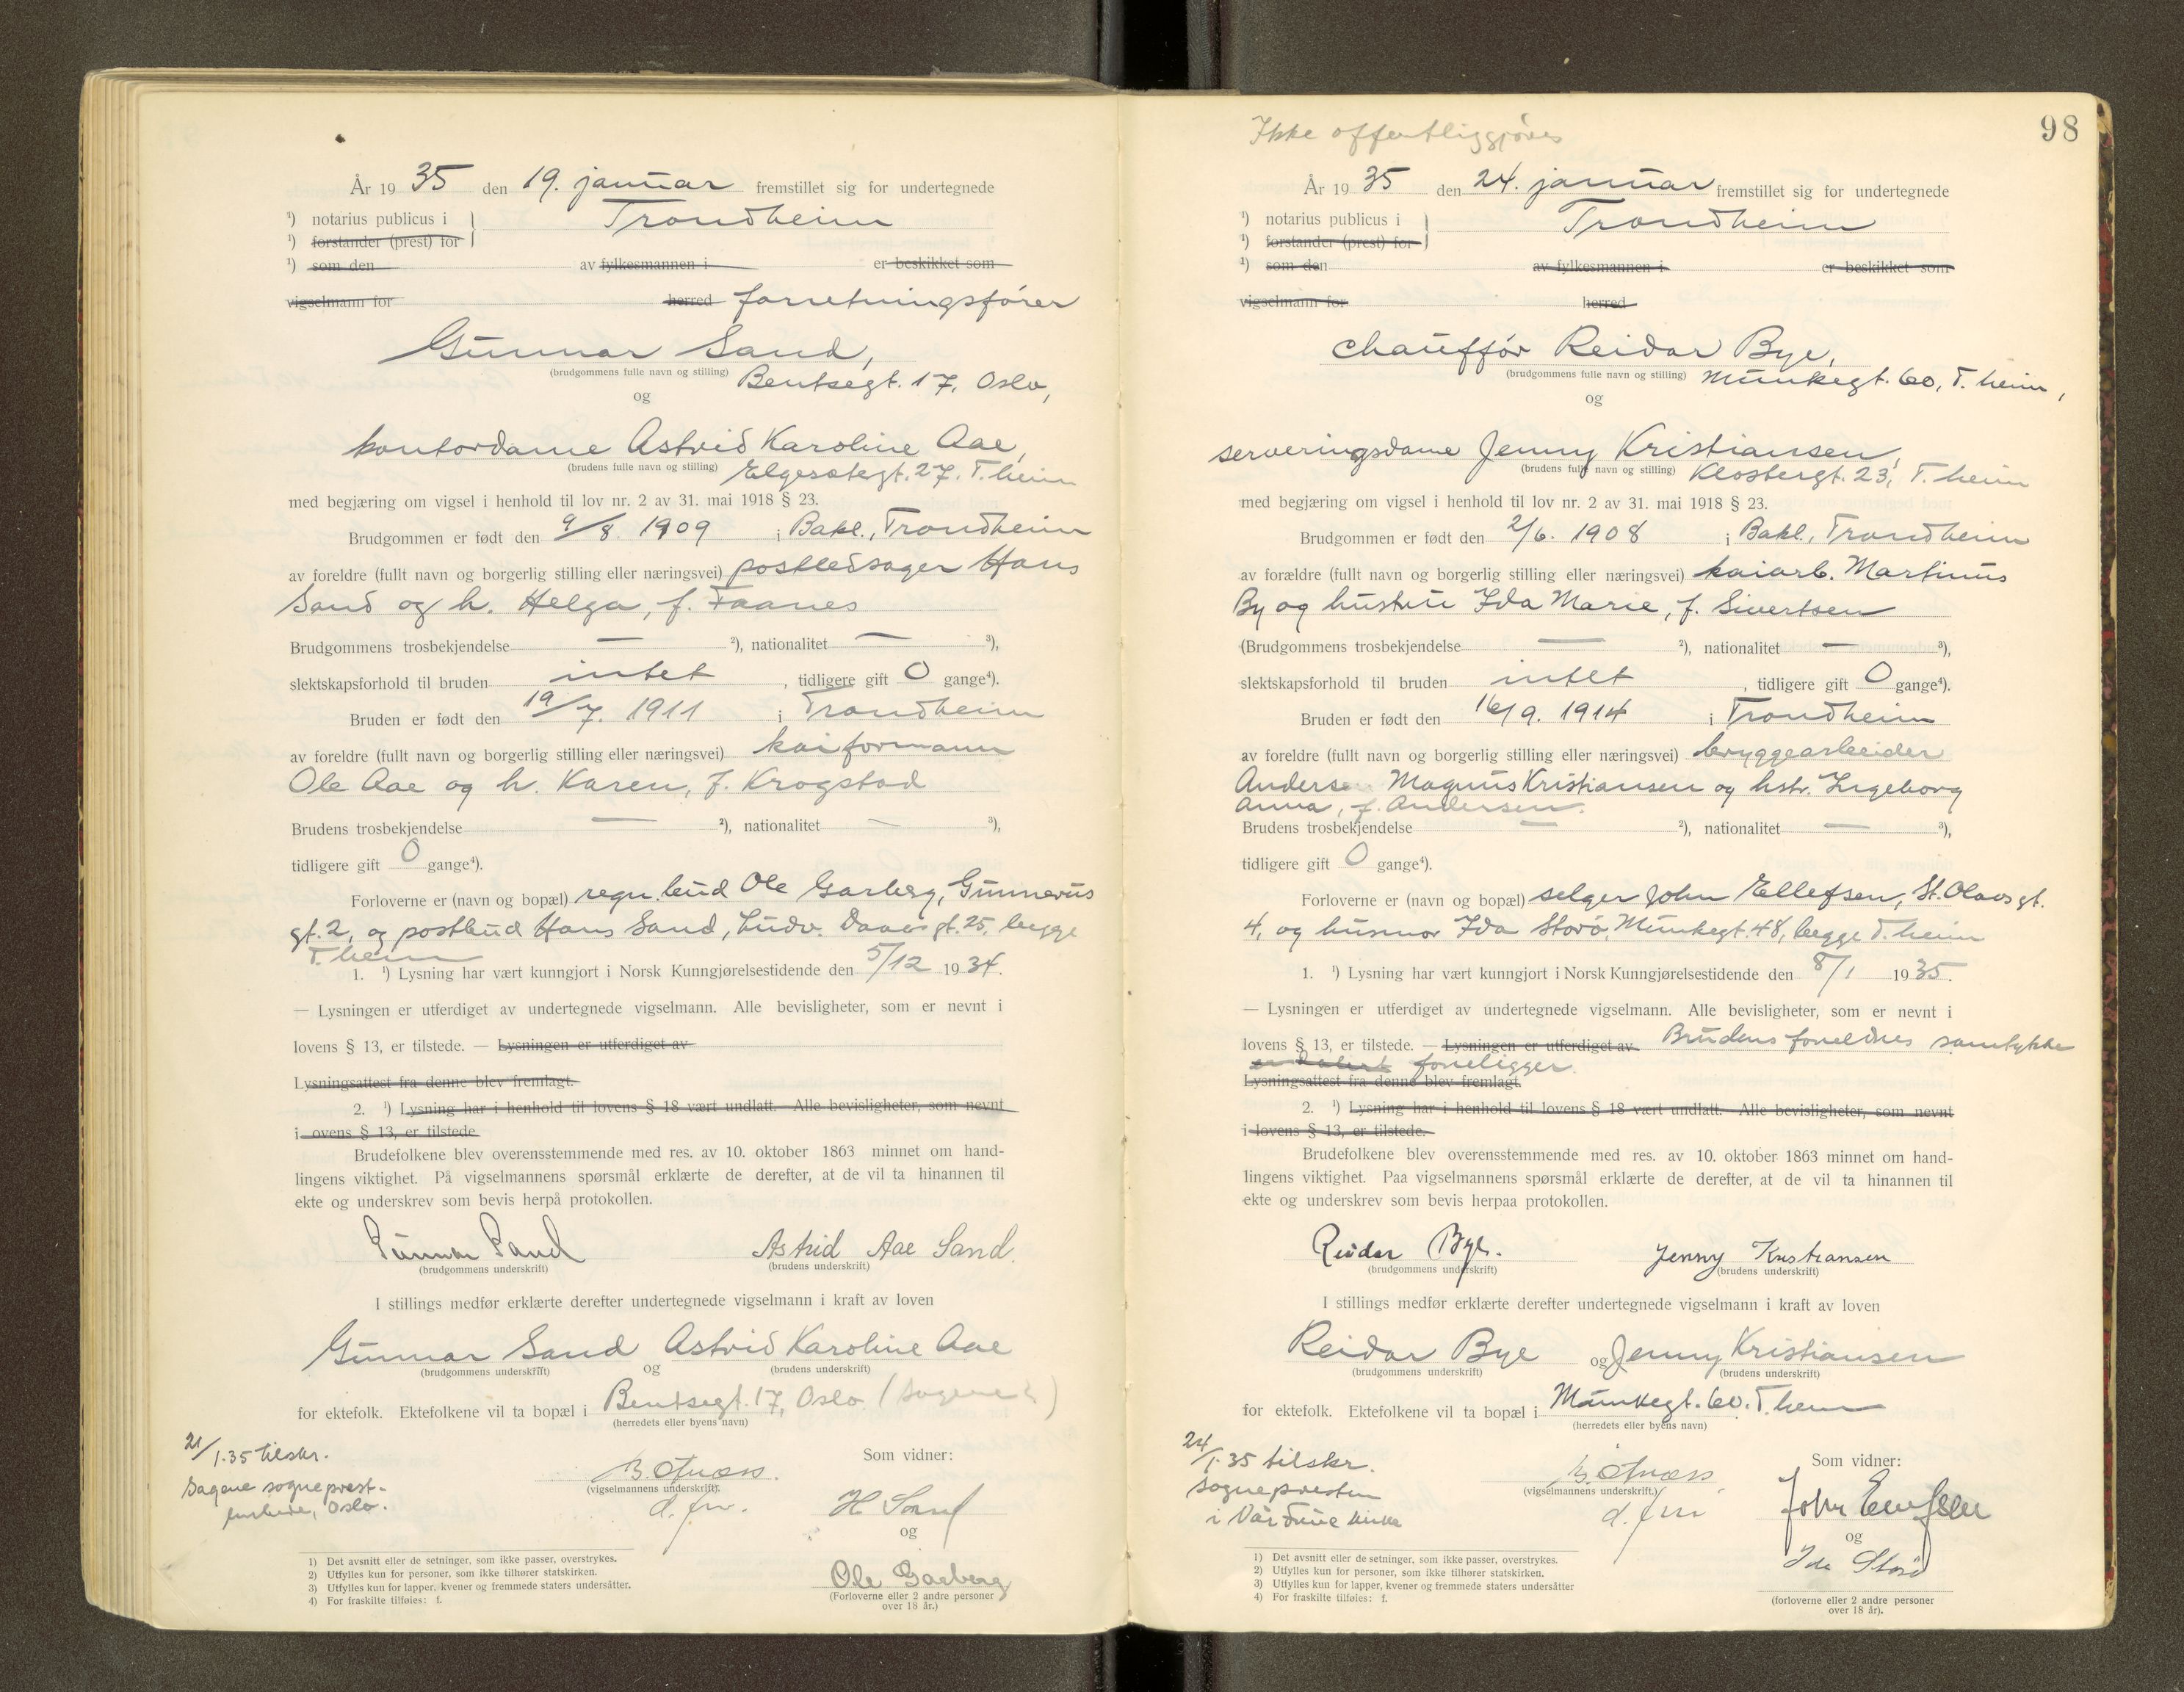 År 1935 den 19. januar fremstillet sig for undertegnede
¹) notarius publicus i Trondheim
¹) forstander (prest) for
¹) som den av fylkesmannen i er beskikket som
vigselmann for herred forretningsfører
Gunnar Sand,
(brudgommens fulle navn og stilling) Bentsegt. 17, Oslo,
og
kontordame Astrid Karoline Aae,
(brudens fulle navn og stilling) Elgesætergt. 27. T.heim
med begjæring om vigsel i henhold til lov nr. 2 av 31. mai 1918 § 23.
Brudgommen er født den 9/8. 1909 i Bakl., Trondheim
av foreldre (fullt navn og borgerlig stilling eller næringsvei) postledsager Hans
Sand og h. Helga, f. Faanes
Brudgommens trosbekjendelse — ²), nationalitet — ³),
slektskapsforhold til bruden intet, tidligere gift 0 gange⁴).
Bruden er født den 19/7. 1911 i Trondheim
av foreldre (fullt navn og borgerlig stilling eller næringsvei) kaiformann
Ole Aae og h. Karen, f. Krogstad
Brudens trosbekjendelse — ²), nationalitet — ³),
tidligere gift 0 gange⁴).
Forloverne er (navn og bopæl) regn.bud Ole Garberg, Gunnerus
gt. 2, og postbud Hans Sand, Ludv. Daaes gt. 25, begge
T.heim
1. ¹) Lysning har vært kunngjort i Norsk Kunngjørelsestidende den 5/12 1934.
— Lysningen er utferdiget av undertegnede vigselmann. Alle bevisligheter, som er nevnt i
lovens § 13, er tilstede. — Lysningen er utferdiget av
Lysningsattest fra denne blev fremlagt.
2. ¹) Lysning har i henhold til lovens § 18 vært undlatt. Alle bevisligheter, som nevnt
i ovens § 13, er tilstede
Brudefolkene blev overensstemmende med res. av 10. oktober 1863 minnet om hand-
lingens viktighet. På vigselmannens spørsmål erklærte de derefter, at de vil ta hinannen til
ekte og underskrev som bevis herpå protokollen.
Gunnar Sand Astrid Aae Sand.
(brudgommens underskrift) (brudens underskrift)
I stillings medfør erklærte derefter undertegnede vigselmann i kraft av loven
Gunnar Sand og Astrid Karoline Aae
(brudgommens underskrift) (brudens underskrift)
for ektefolk. Ektefolkene vil ta bopæl i Bentsegt. 17, Oslo. (Sagene
(herredets eller byens navn)
21/1.35 tilskr.
Sagene sogneprest-
embede, Oslo.
(vigselmannens underskrift).
Som vidner:
H Sand
og
Ole Garberg
(Forloverne eller 2 andre personer
over 18 år.)
1) Det avsnitt eller de setninger, som ikke passer, overstrykes.
2) Utfylles kun for personer, som ikke tilhører statskirken.
3) Utfylles kun for lapper, kvener og fremmede staters undersåtter.
4) For fraskilte tilføies: f.
Ikke offentliggjøres
98
År 1935 den 24. januar fremstillet sig for undertegnede
¹) notarius publicus i Trondheim
¹) forstander (prest) for
¹) som den av fylkesmannen i er beskikket som
vigselmann for herred
chauffør Reidar Bye,
(brudgommens fulle navn og stilling) Munkegt. 60, T.heim,
og
serveringsdame Jenny Kristiansen,
(brudens fulle navn og stilling) Klostergt. 23, T.heim
med begjæring om vigsel i henhold til lov nr. 2 av 31. mai 1918 § 23.
Brudgommen er født den 2/6. 1908 i Bakl., Trondheim
av forældre (fullt navn og borgerlig stilling eller næringsvei) kaiarb. Martinus
By og hustru Ida Marie, f. Sivertsen
(Brudgommens trosbekjendelse — ²), nationalitet — ³),
slektskapsforhold til bruden intet, tidligere gift 0 gange⁴).
Bruden er født den 16/9. 1914 i Trondheim
av foreldre (fullt navn og borgerlig stilling eller næringsvei) bryggearbeider
Anderse Magnus Kristiansen og hstr. Ingeborg
Anna, f. Andersen.
Brudens trosbekjendelse — ²), nationalitet — ³),
tidligere gift 0 gange⁴).
Forloverne er (navn og bopæl) selger John Ellefsen, St. Olavs gt.
4, og husmor Ida Storø, Munkegt. 48, begge T.heim
1. ¹) Lysning har vært kunngjort i Norsk Kunngjørelsestidende den 8/1 1935.
— Lysningen er utferdiget av undertegnede vigselmann. Alle bevisligheter, som er nevnt i
lovens § 13, er tilstede. — Lysningen er utferdiget av Brudens foreldres samtykke
foreligger.
Lysningsattest fra denne blev fremlagt.
2. ¹) Lysning har i henhold til lovens § 18 vært undlatt. Alle bevisligheter, som nevnt
i lovens § 13, er tilstede.
Brudefolkene blev overensstemmende med res. av 10. oktober 1863 minnet om hand-
lingens viktighet. Paa vigselmannens spørsmål erklærte de derefter, at de vil ta hinannen til
ekte og underskrev som bevis herpaa protokollen.
Reidar Bye. Jenny Kristiansen
(brudgommens underskrift) (brudens underskrift)
I stillings medfør erklærte derefter undertegnede vigselmann i kraft av loven
Reidar Bye og Jenny Kristiansen
(brudgommens underskrift) (brudens underskrift)
for ektefolk. Ektefolkene vil ta bopæl i Munkegt. 60. T.heim
(herredets eller byens navn)
24/1.35 tilskr.
sognepresten
i Vår Frue kirke
(vigselmannens underskrift.)
Som vidner:
John Ellefsen
og
Ida Storø
(forloverne eller 2 andre personer
over 18 år).
1) Det avsnitt eller de setninger, som ikke passer, overstrykes.
2) Utfylles kun for personer, som ikke tilhører statskirken.
3) Utfylles kun for lapper, kvener og fremmede staters undersåtter
4) For fraskilte tilføies: f.